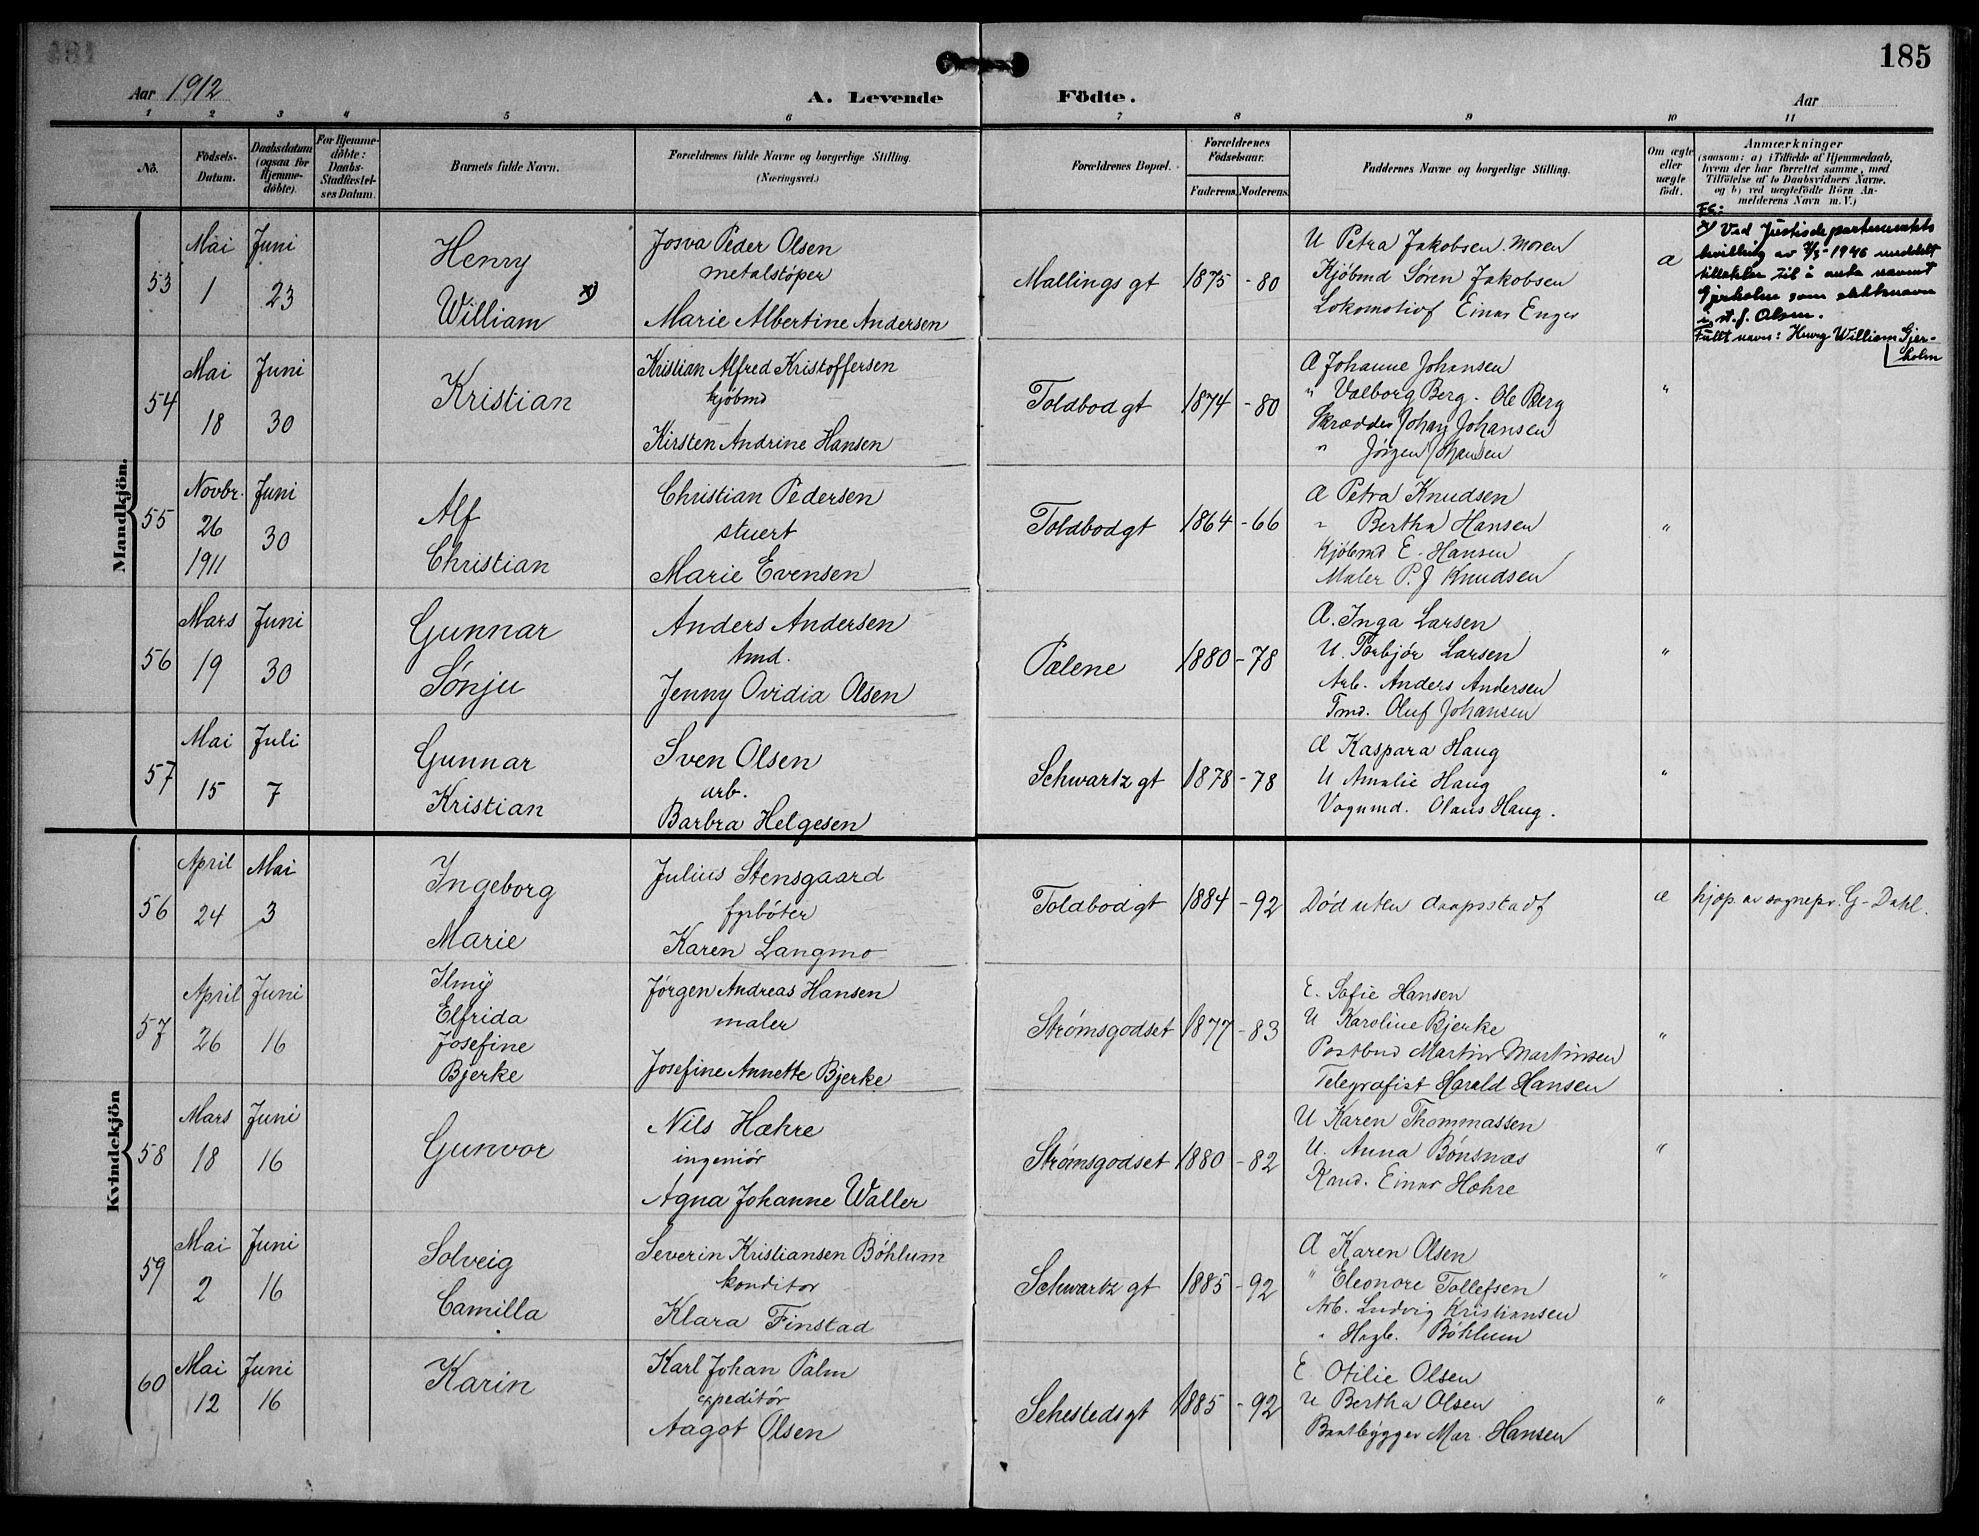 185
Aar 1912
A. Levende Födte.
Aar
1 2 3 4 5 6 7 8 9 10 11
No.
Födsels-Datum.
Daabsdatum (ogsaa for Hjemme-döbte).
For Hjemme-döbte: Daabs-Stadfæstel-ses Datum.
Barnets fulde Navn.
Forældrenes fulde Navne og borgerlige Stilling. (Næringsvei.)
Forældrenes Bopæl.
Forældrenes Födselsaar.
Faderens. Moderens.
Faddernes Navne og borgerlige Stilling.
Om ægte eller uægte födt.
Anmærkninger
(saasom: a) i Tilfælde af Hjemmedaab,
hvem der har forrettet samme, med
Tilföielse af to Daabsvidners Navne,
og b) ved uægtefödte Börn An-
melderens Navn m. V.)
Mandkjön.
53
Mai 1
Juni 23
Henry
William x)
Josva Peder Olsen
metalstøper
Marie Albertine Andersen
Mallings gt
1875 - 80
U Petra Jakobsen. Moren
Kjøbmd Søren Jakobsen
Lokomotivf Einar Enger
a
FS:
x) Ved Justisdepartementets
bevilling av 7/5-1946 meddelt
tillatelse til å anta navnet
Gjerholm som slektsnavn
i st. f. Olsen.
Fullt navn: Henry William Gjer-
holm
54
Mai 18
Juni 30
Kristian
Kristian Alfred Kristoffersen
kjøbmd
Kirsten Andrine Hansen
Toldbodgt
1874 - 80
Æ Johanne Johansen
" Valborg Berg - Ole Berg
Skrædder Johan Johansen
" Jørgen Hansen
"
55
Novbr. 26 1911
Juni 30
Alf
Christian
Christian Pedersen
stuert
Marie Evensen
Toldbodgt
1864 - 66
Æ Petra Knudsen
" Bertha Hansen
Kjøbmd E. Hansen
Maler P. J Knudsen
"
56
Mars 19
Juni 30
Gunnar
Sønju
Anders Andersen
tmd.
Jenny Ovidia Olsen
Pælene
1880 - 78
Æ. Inga Larsen
U. Torbjør Larsen
Arb. Anders Andersen
Tmd. Oluf Johansen
"
57
Mai 15
Juli 7
Gunnar
Kristian
Sven Olsen
arb.
Barbra Helgesen
Schwartz gt
1878 - 78
Æ Kaspara Haug
U Amalie Haug
Vognmd. Olaus Haug.
"
Kvindekjön
56
April 24
Mai 3
Ingeborg
Marie
Julius Stensgaard
fyrbøter
Karen Langmo
Toldbodgt
1884 - 92
Død uten daapsstadf
æ
hjdp. av sognepr. G. Dahl.
57
April 26
Juni 16
Ilmy
Elfrida
Josefine
Bjerke
Jørgen Andreas Hansen
maler
Josefine Annette Bjerke
Strømsgodset
1877 - 83
E. Sofie Hansen
U Karoline Bjerke
Postbud Martin Martinsen
Telegrafist Harald Hansen
"
58
Mars 18
Juni 16
Gunvor
Nils Hæhre
ingeniør
Agna Johanne Waller
Strømsgodset
1880 - 82
U Karen Thommassen
U. Anna Bønsnæs
Kand. Einar Hæhre
"
59
Mai 2
Juni 16
Solveig
Camilla
Severin Kristiansen Bøhlum
konditor
Klara Finstad
Schwartz gt
1885 - 92
Æ Karen Olsen
" Eleonore Tollefsen
Arb. Ludvig Kristiansen
" Hagb. Bøhlum
"
60
Mai 12
Juni 16
Karin
Karl Johan Palm
expeditør
Aagot Olsen
Sehestedsgt
1885 - 92
E Otilie Olsen
U Bertha Olsen
Baatbygger Mar. Hansen
"